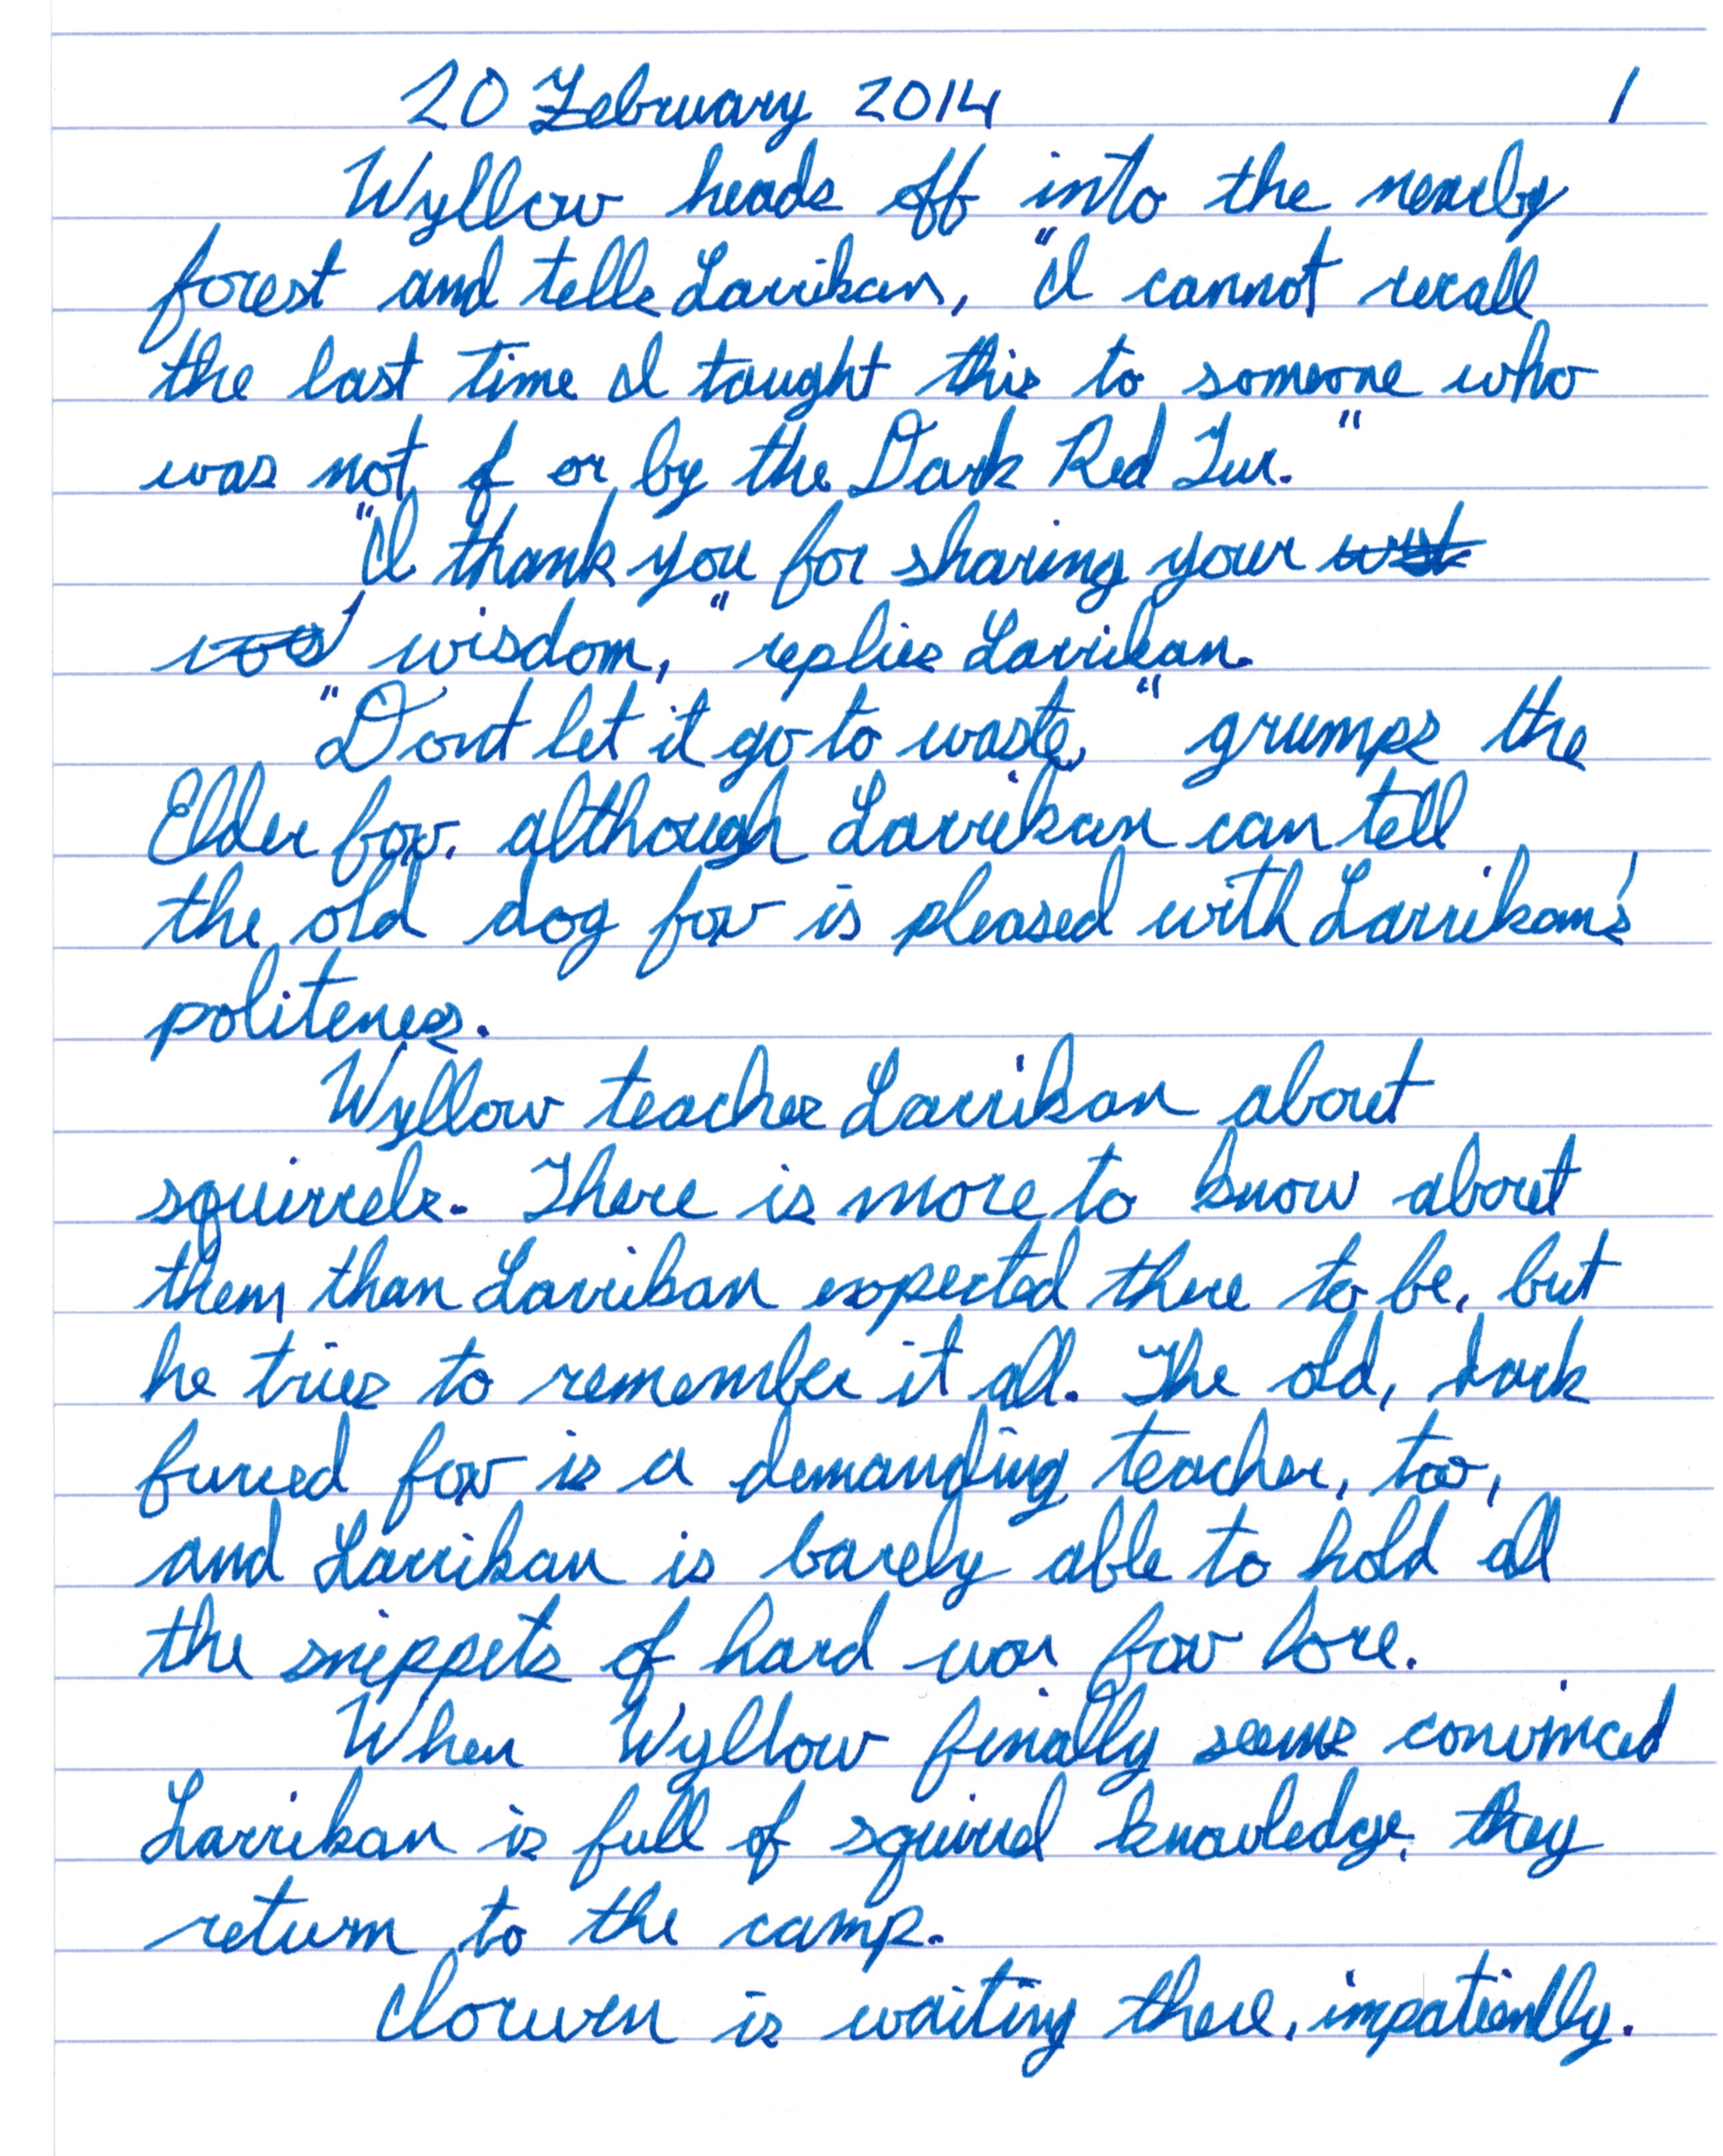 20 February 2014 1
Wyllow heads off into the nearby
forest and tells Larrikan, "I cannot recall
the last time I taught this to someone who
was not of or by the Dark Red Fur."
"I thank you for sharing your
wisdom," replies Larrikan.
"Dont let it go to waste," grumps the
Elder fox, although Larrikan can tell
the old dog fox is pleased with Larrikan's
politeness.
Wyllow teaches Larrikan about
squirrels. There is more to know about
them than Larrikan expected there to be, but
he tries to remember it all. The old, dark
furred fox is a demanding teacher, too,
and Larrikan is barely able to hold all
the snippets of hard won fox lore.
When Wyllow finally seems convinced
Larrikan is full of squirrel knowledge, they
return to the camp.
is waiting there, impatiently.